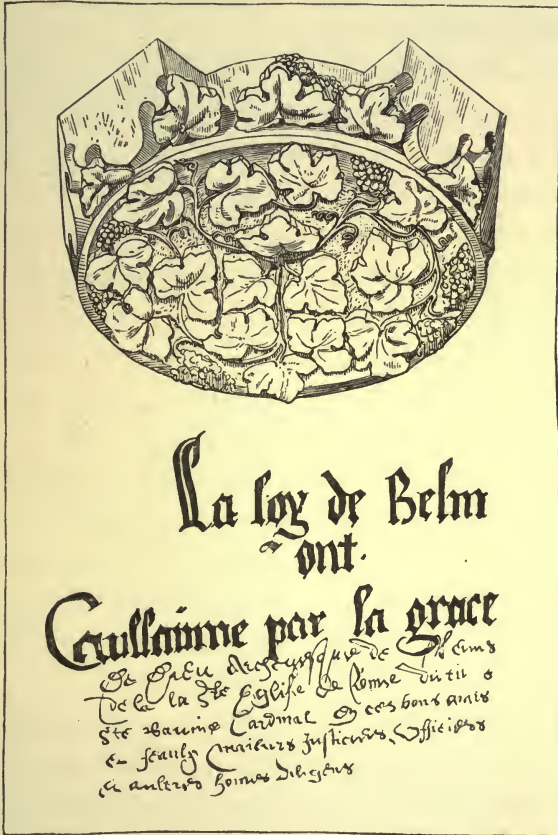 La loy de Belm
ont.
Guillaume par la grace
De Dieu Archeuesque de Rheims
De la Ste Eglise de Rome du
Ste Cardinal ces bons amis
et feaulx maieurs Justiciers Officiers
et aultres homes diligens